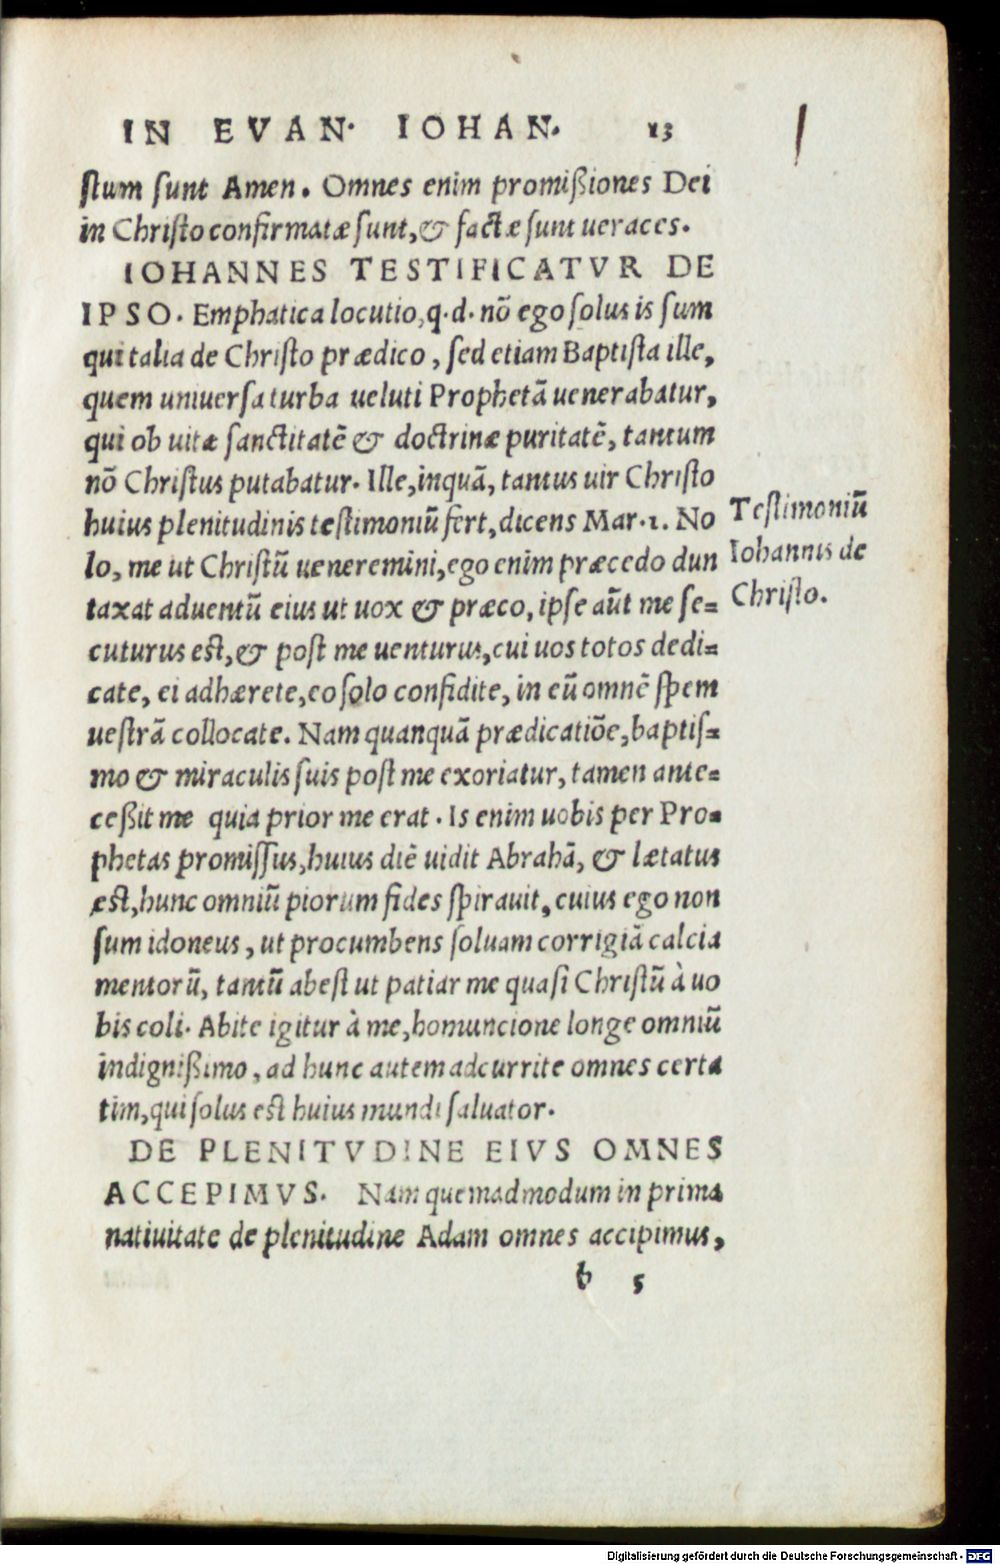 IN EVAN. IOHAN. 13
stum sunt Amen. Omnes enim promißiones Dei
in Christo confirmatæ sunt, & factæ sunt ueraces.
IOHANNES TESTIFICATVR DE
IPSO. Emphatica locutio, q.d. nō ego solus is sum
qui talia de Christo prædico, sed etiam Baptista ille,
quem uniuersa turba ueluti Prophetā uenerabatur,
qui ob uitæ sanctitatē & doctrinæ puritatē, tantum
nō Christus putabatur. Ille, inquā, tantus uir Christo
huius plenitudinis testimoniū fert, dicens Mar.1. No
lo, me ut Christū ueneremini, ego enim præcedo dun
taxat aduentū eius ut uox & præco, ipse aūt me se=
cuturus est, & post me uenturus, cui uos totos dedi=
cate, ei adhærete, eo solo confidite, in eū omnē spem
uestrā collocate. Nam quanquā prædicatiōe, baptis=
mo & miraculis suis post me exoriatur, tamen ante=
ceßit me quia prior me erat. Is enim uobis per Pro=
phetas promissus, huius diē uidit Abrahā, & lætatus
est, hunc omniū piorum fides spirauit, cuius ego non
sum idoneus, ut procumbens soluam corrigiā calcia
mentorū, tantū abest ut patiar me quasi Christū à uo
bis coli. Abite igitur à me, homuncione longe omniū
indignißimo, ad hunc autem adcurrite omnes certa
tim, qui solus est huius mundi saluator.
DE PLENITVDINE EIVS OMNES
ACCEPIMVS. Nam quemadmodum in prima
natiuitate de plenitudine Adam omnes accipimus,
b 5
Testimoniū
Iohannis de
Christo.
Digitalisierung gefördert durch die Deutsche Forschungsgemeinschaft - DFG